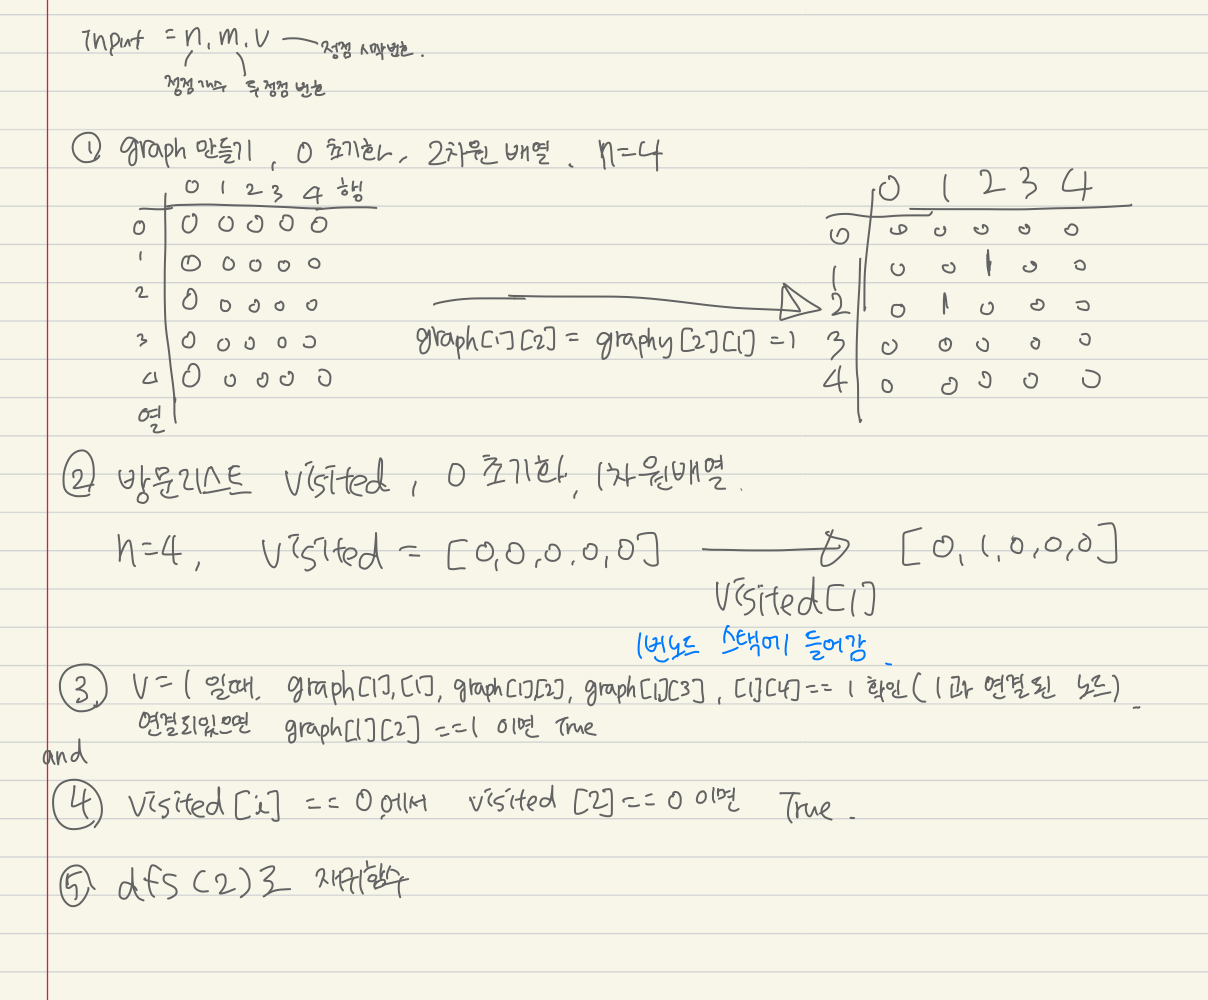 Input = n, m, v 정점 시작번호.
정점 개수 두 정점 번호
① graph 만들기, 0 초기화, 2차원 배열. n=4
0 1 2 3 4 행
0 0 0 0 0 0
1 0 0 0 0 0
2 0 0 0 0 0
3 0 0 0 0 0
4 0 0 0 0 0
열
graph[1][2] = graphy[2][1] =1
0 1 2 3 4
0 0 0 0 0 0
1 0 0 1 0 0
2 0 1 0 0 0
3 0 0 0 0 0
4 0 0 0 0 0
② 방문리스트 visited, 0 초기화, 1차원배열.
n=4, visited = [0,0,0,0,0] → [0,1,0,0,0]
visited[1]
1번노드 스택에 들어감.
③ v=1 일때. graph[1],[1], graph[1][2], graph[1][3], [1][4]== 1 확인(1과 연결된 노드).
연결되있으면 graph[1][2]==1 이면 True
and
④ visited[i] == 0에서 visited [2]==0 이면 True.
⑤ dfs(2)로 재귀함수